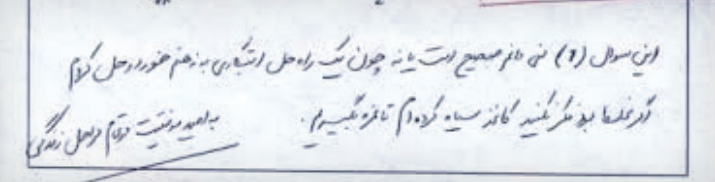 این سوال (۲) نمی دانم صحیح است یا نه چون یک راه حل ابتکاری به ذهنم خطور و حل کردم
اگر غلط بود فکر نکنید کاغذ سیاه کرده ام تا نمره بگیرم.
به امید موفقیت در تمام مراحل زندگی